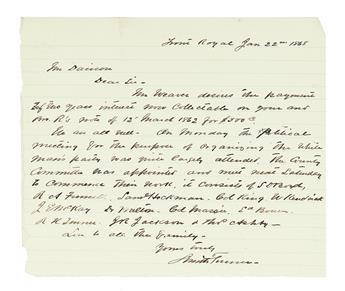 Front Royal Jan 22nd 1868
Mr Davison
Dear Sir-
Mr Weaver desires the payment
of two years interest now collectable on your and
Mrs. R's note of 12th March 1862 for $500.
We are all well - On Monday the political
meeting for the purpose of organizing the White
Man's party was quite largely attended. The County
Committee was appointed and meet next Saturday
to commence their work. it consists of S. O.
R. A Saml Hockman. Col King W Kendrick
J. E McKay Dr Walton. Col Massie, Ed Bowen
R. H. Turner. Job Jackson & Thos Ashby -
Love to all the family -
Yours truly
Smith Turner